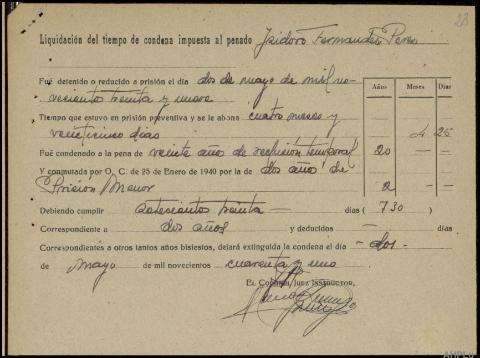 23
Liquidación del tiempo de condena impuesta al penado Isidoro Fernandez Perez
Fué detenido o reducido a prisión el día dos de mayo de mil no-
vecientos treinta y nueve
Años Meses Días
Tiempo que estuvo en prisión preventiva y se le abona cuatro meses y
veinticinco dias 4 25
Fué condenado a la pena de veinte años de reclusión temporal 20 — —
Y conmutada por O. C. de 25 de Enero de 1940 por la de dos años de
Prisión Menor 2 — —
Debiendo cumplir setecientos treinta — días ( 730 )
Correspondiente a dos años y deducidos — días
Correspondientes a otros tantos años bisiestos, dejará extinguida la condena el día — dos —
de mayo de mil novecientos cuarenta y uno
El Coronel Juez Instructor,